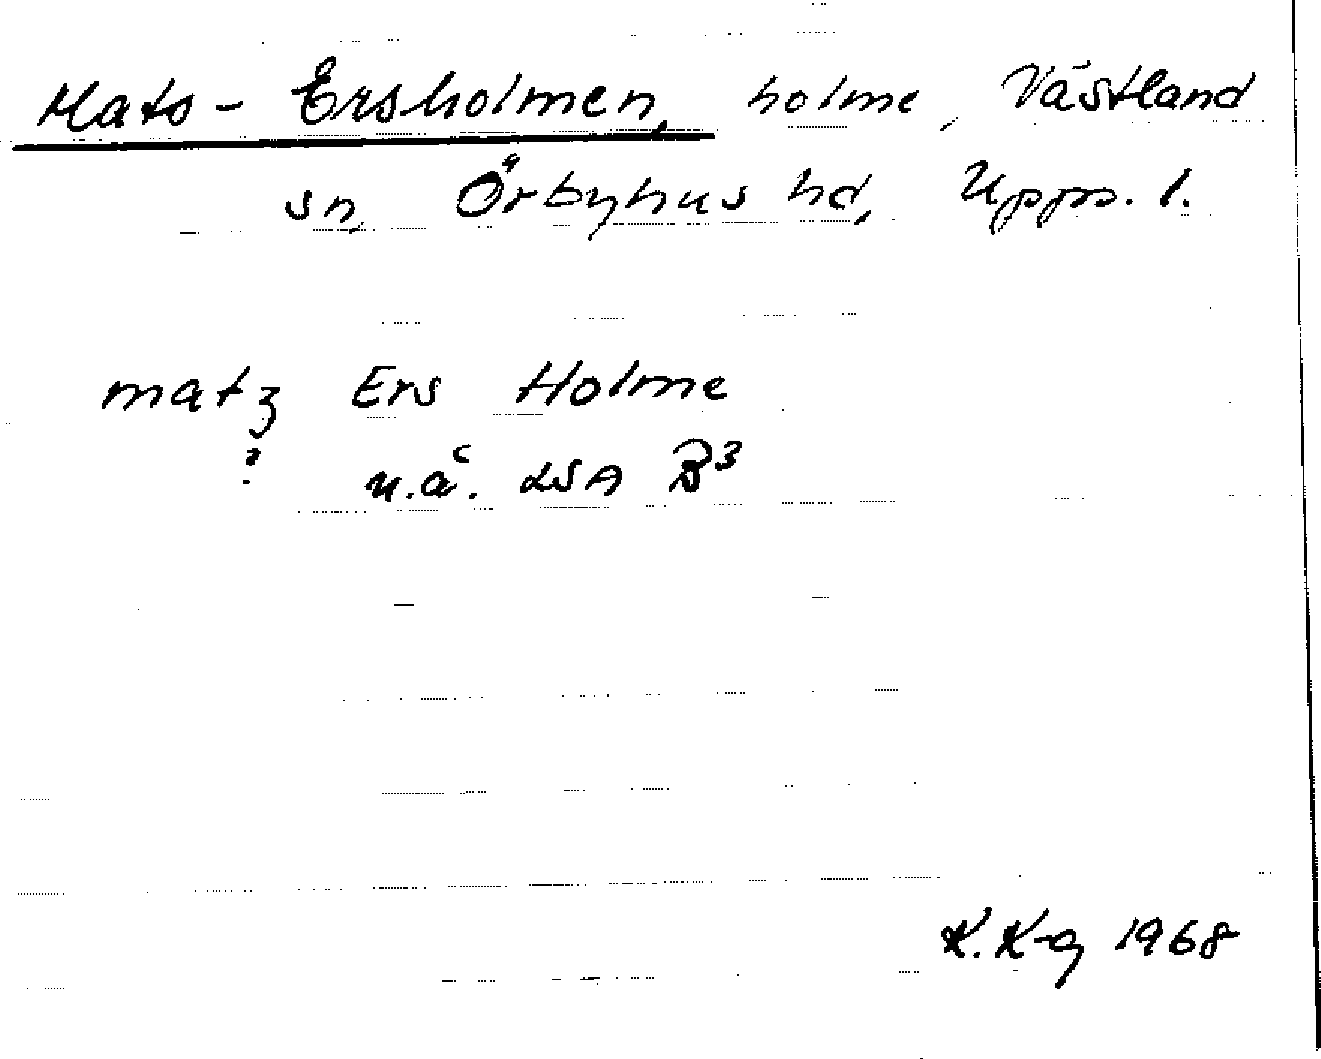 Mats-Ersholmen, holme, Västland
sn, Örbyhus hd, Upps. l.
matz Ers Holme
? u.å. LSA B3
K. K-g 1968